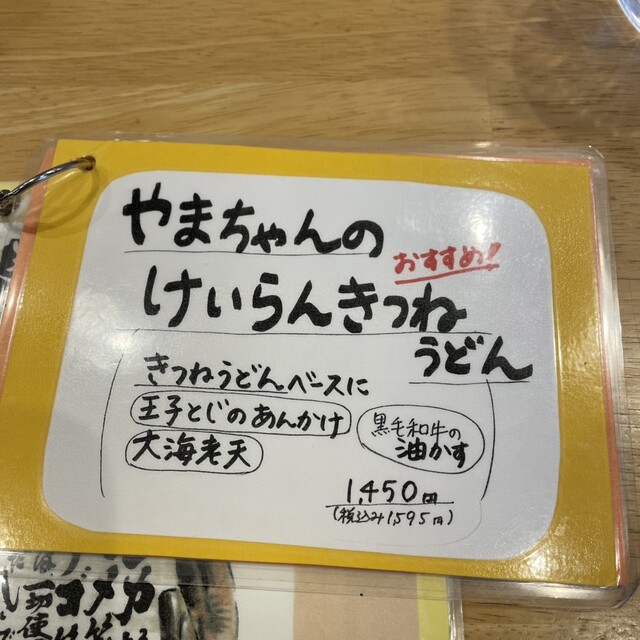 やまちゃんの
おすすめ!
けいらんきつね
うどん
きつねうどんベースに
玉子とじのあんかけ
大海老天
黒毛和牛の
油かす
1,450円
(税込み1,595円)